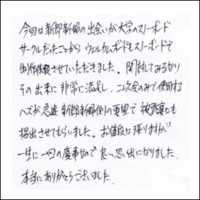 今回は新郎新婦の出会いが大学のスノーボード
サークルだったことからウェルカムボードもスノーボードで
制作依頼させていただきました。開封してみるなり
その出来に非常に満足し、二次会のみで使用する
ハズが急遽新郎新婦側の要望で披露宴でも
提出させてもらいました。お値段は張りますが
一生に一回の慶事なので良い思い出になりました。
本当にありがとうございました。